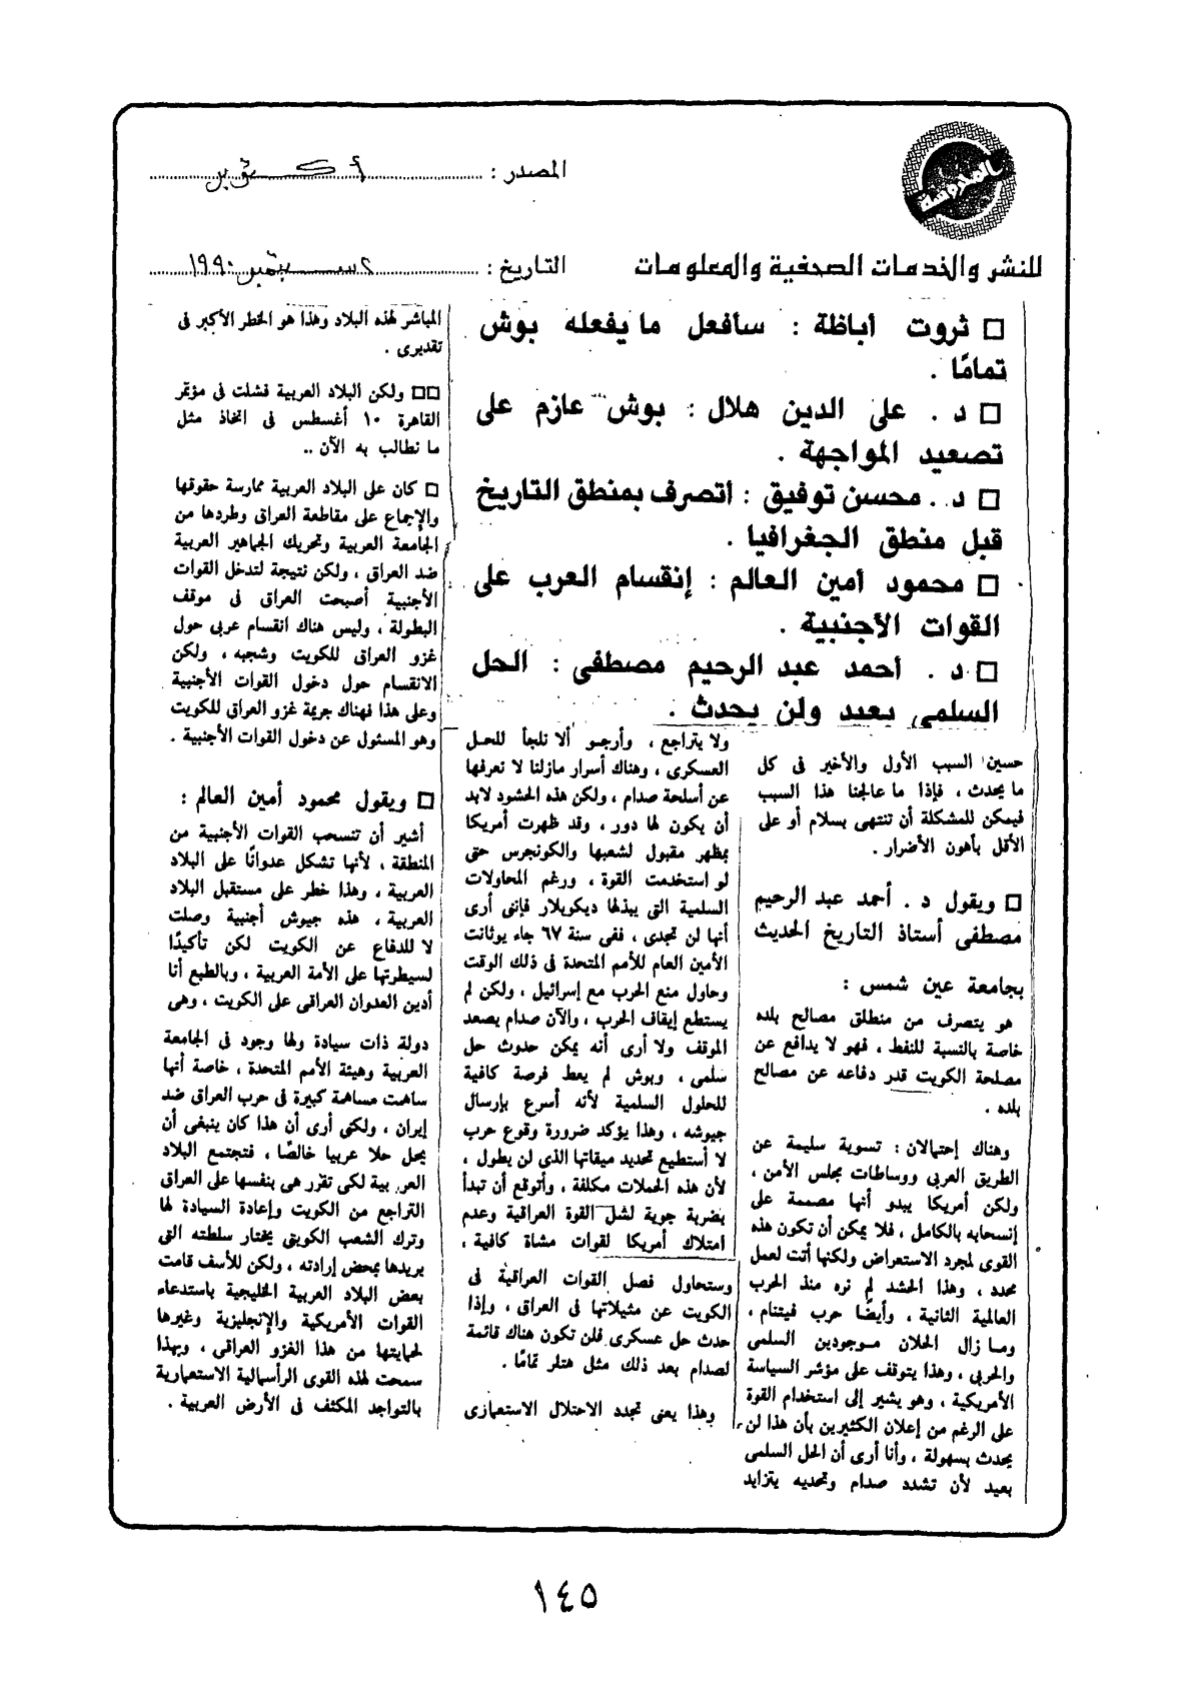 المصدر : أكتوبر
للنشر والخدمات الصحفية والمعلومات
التاريخ : ٢ سبتمبر ١٩٩٠
□ ثروت أباظة : سأفعل ما يفعله بوش
تمامًا .
□ د . على الدين هلال : بوش عازم على
تصعيد المواجهة .
□ د . محسن توفيق : أتصرف بمنطق التاريخ
قبل منطق الجغرافيا .
□ محمود أمين العالم : إنقسام العرب على
القوات الأجنبية .
□ د . أحمد عبد الرحيم مصطفى : الحل
السلمى بعيد ولن يحدث .
حسين السبب الأول والأخير فى كل
ما يحدث ، فإذا ما عالجنا هذا السبب
فيمكن للمشكلة أن تنتهى بسلام أو على
الأقل بأهون الأضرار .
□ ويقول د . أحمد عبد الرحيم
مصطفى أستاذ التاريخ الحديث
بجامعة عين شمس :
هو يتصرف من منطلق مصالح بلده
خاصة بالنسبة للنفط ، فهو لا يدافع عن
مصلحة الكويت قدر دفاعه عن مصالح
بلده .
وهناك إحتمالان : تسوية سليمة عن
الطريق العربى ووساطات مجلس الأمن ،
ولكن أمريكا يبدو أنها مصممة على
إنسحابه بالكامل ، فلا يمكن أن تكون هذه
القوى لمجرد الاستعراض ولكنها أتت لعمل
محدد ، وهذا الحشد لم نره منذ الحرب
العالمية الثانية ، وأيضًا حرب فيتنام ،
وما زال الحلان موجودين السلمى
والحربى ، وهذا يتوقف على مؤشر السياسة
الأمريكية ، وهو يشير إلى استخدام القوة
على الرغم من إعلان الكثيرين بأن هذا لن
يحدث بسهولة ، وأنا أرى أن الحل السلمى
بعيد لأن تشدد صدام وتحديه يتزايد
ولا يتراجع ، وأرجو ألا نلجأ للحل
العسكرى ، وهناك أسرار مازلنا لا نعرفها
عن أسلحة صدام ، ولكن هذه الحشود لابد
أن يكون لها دور ، وقد ظهرت أمريكا
بمظهر مقبول لشعبها والكونجرس حتى
لو استخدمت القوة ، ورغم المحاولات
السلمية التى يبذلها ديكويلار فإننى أرى
أنها لن تجدى ، ففى سنة ٦٧ جاء يوثانت
الأمين العام للأمم المتحدة فى ذلك الوقت
وحاول منع الحرب مع إسرائيل ، ولكن لم
يستطع إيقاف الحرب ، والآن صدام يصعد
الموقف ولا أرى أنه يمكن حدوث حل
سلمى ، وبوش لم يعط فرصة كافية
للحلول السلمية لأنه أسرع بإرسال
جيوشه ، وهذا يؤكد ضرورة وقوع حرب
لا أستطيع تحديد ميقاتها الذى لن يطول ،
لأن هذه الحملات مكلفة ، وأتوقع أن تبدأ
بضربة جوية لشل القوة العراقية وعدم
امتلاك أمريكا لقوات مشاة كافية ،
وستحاول فصل القوات العراقية فى
الكويت عن مثيلاتها فى العراق ، وإذا
حدث حل عسكرى فلن تكون هناك قائمة
لصدام بعد ذلك مثل هتلر تمامًا .
وهذا يعنى تجدد الاحتلال الاستعمارى
المباشر لهذه البلاد وهذا هو الخطر الأكبر فى
تقديرى .
□□ ولكن البلاد العربية فشلت فى مؤتمر
القاهرة ١٠ أغسطس فى اتخاذ مثل
ما نطالب به الآن ..
□ كان على البلاد العربية ممارسة حقوقها
والإجماع على مقاطعة العراق وطردها من
الجامعة العربية وتحريك الجماهير العربية
ضد العراق ، ولكن نتيجة لتدخل القوات
الأجنبية أصبحت العراق فى موقف
البطولة ، وليس هناك انقسام عربى حول
غزو العراق للكويت وشجبه ، ولكن
الانقسام حول دخول القوات الأجنبية
وعلى هذا فهناك جريمة غزو العراق للكويت
وهو المسئول عن دخول القوات الأجنبية .
□ ويقول محمود أمين العالم :
أشير أن تنسحب القوات الأجنبية من
المنطقة ، لأنها تشكل عدوانًا على البلاد
العربية ، وهذا خطر على مستقبل البلاد
العربية ، هذه جيوش أجنبية وصلت
لا للدفاع عن الكويت لكن تأكيدًا
لسيطرتها على الأمة العربية ، وبالطبع أنا
أدين العدوان العراقى على الكويت ، وهى
دولة ذات سيادة ولها وجود فى الجامعة
العربية وهيئة الأمم المتحدة ، خاصة أنها
ساهمت مساهمة كبيرة فى حرب العراق ضد
إيران ، ولكنى أرى أن هذا كان ينبغى أن
يحل حلا عربيا خالصًا ، فتجتمع البلاد
العربية لكى تقرر هى بنفسها على العراق
التراجع من الكويت وإعادة السيادة لها
وترك الشعب الكويتى يختار سلطته التى
يريدها بمحض إرادته ، ولكن للأسف قامت
بعض البلاد العربية الخليجية باستدعاء
القوات الأمريكية والإنجليزية وغيرها
لحمايتها من هذا الغزو العراقى ، وبهذا
سمحت لهذه القوى الرأسمالية الاستعمارية
بالتواجد المكثف فى الأرض العربية .
١٤٥